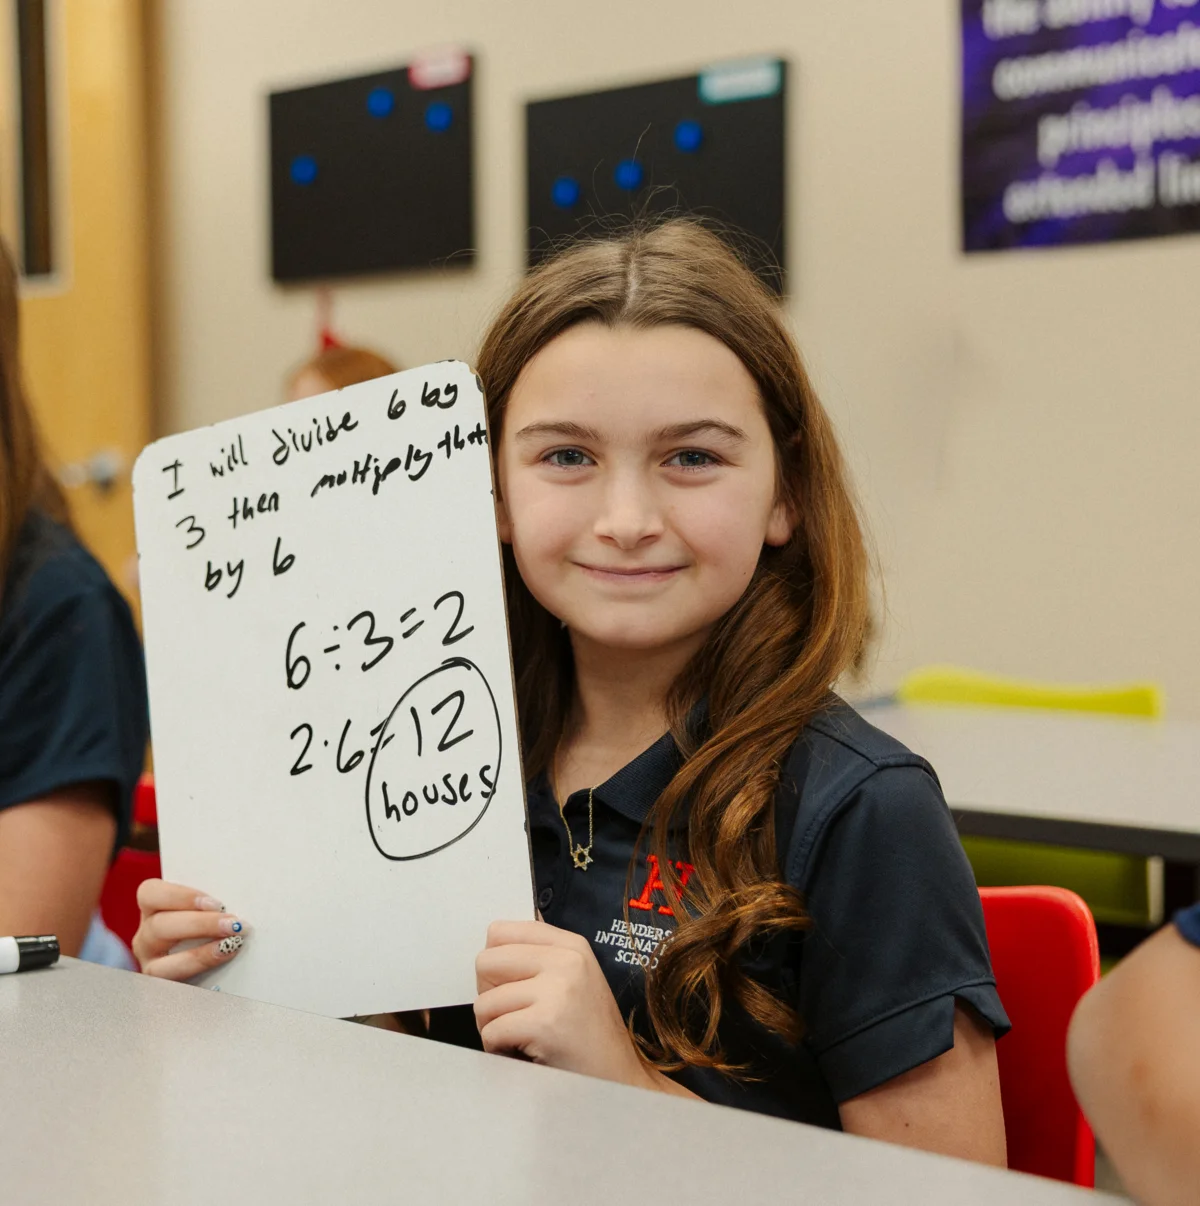 the ability to
principles
extended
I will divide 6 by
3 then multiply that
by 6
6÷3=2
2·6=12
houses
H
INTERNAT
SCHO